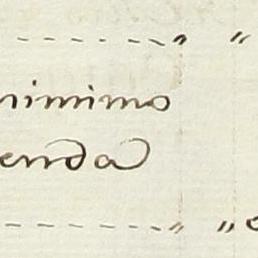 - - - - - - - " "
nimimo
enda
- - - - - - - " "